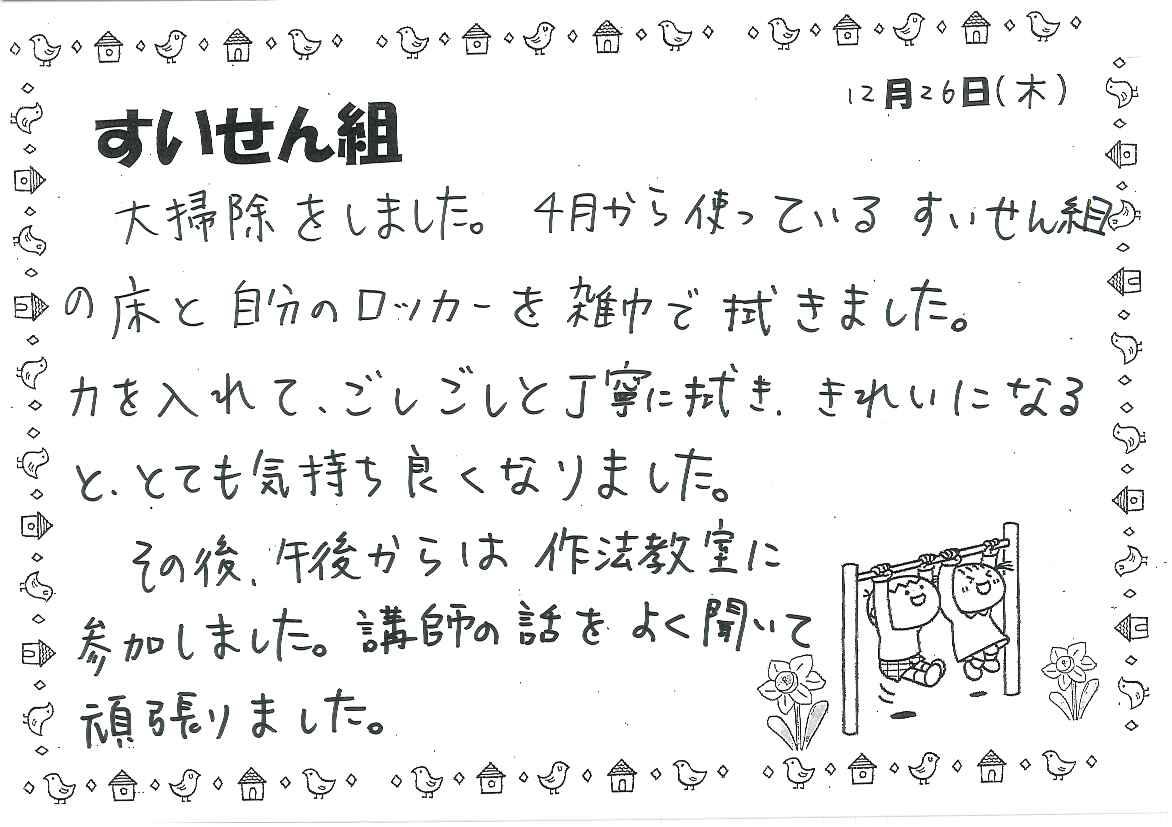 12月26日(木)
すいせん組
大掃除をしました。4月から使っているすいせん組
の床と自分のロッカーを雑巾で拭きました。
力を入れて、ごしごしと丁寧に拭き、きれいになる
と、とても気持ち良くなりました。
その後、午後からは作法教室に
参加しました。講師の話をよく聞いて
頑張りました。